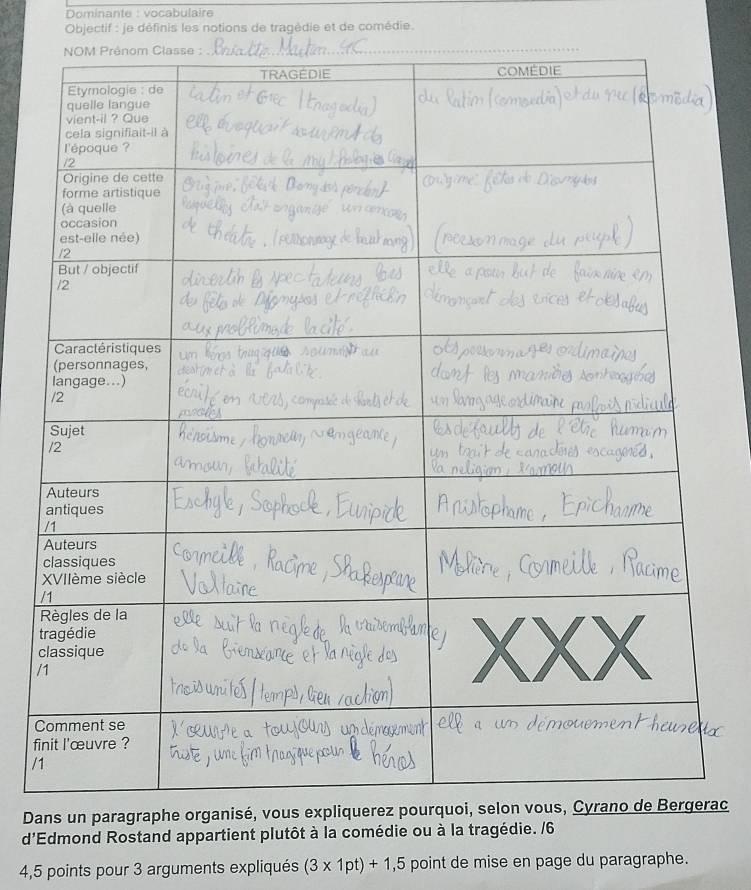 Dominante : vocabulaire
Objectif : je définis les notions de tragédie et de comédie.
NOM Prénom Classe : Martin 4C
TRAGÉDIE
COMÉDIE
Etymologie : de
quelle langue
vient-il ? Que
cela signifiait-il à
l'époque ?
/2
Latin et Grec (tragodia)
elle évoquait souvent des
histoires de la mythologie
du latin (comoedia) et du grec (komodia)
Origine de cette
forme artistique
(à quelle
occasion
est-elle née)
/2
Origine: fêtes de Dionysos pendant
lesquelles était organisé un concours
de théâtre. (personnage de haut rang)
origine: fêtes de Dionysos
(personnage du peuple)
But / objectif
/2
divertir les spectateurs lors
des fêtes de Dionysos et réfléchir
aux problème de la cité.
elle a pour but de faire rire en
dénonçant des vices et des abus
Caractéristiques
(personnages,
langage...)
/2
un héros tragique soumis au
destin et à la fatalité.
écrite en vers, composée de chants et de
paroles
des personnages ordinaires
dont les
un langage ordinaire parfois ridicule
Sujet
/2
héroïsme, honneur, vengeance,
amour, fatalité
les défauts de l'être humain
un trait de caractères exagérés,
la religion, l'amour
Auteurs
antiques
/1
Eschyle, Sophocle, Euripide
Aristophane, Epicharme
Auteurs
classiques
XVIIème siècle
/1
Corneille, Racine, Shakespeare
Voltaire
Molière, Corneille, Racine
Règles de la
tragédie
classique
/1
elle suit la règle de la vraisemblance,
de la bienséance et la règle des
trois unités (temps, lieu, action)
XXX
Comment se
finit l'œuvre ?
/1
L'œuvre a toujours un dénouement
triste, une fin tragique pour le héros
elle a un dénouement heureux
Dans un paragraphe organisé, vous expliquerez pourquoi, selon vous, Cyrano de Bergerac
d'Edmond Rostand appartient plutôt à la comédie ou à la tragédie. /6
4,5 points pour 3 arguments expliqués (3 x 1pt) + 1,5 point de mise en page du paragraphe.